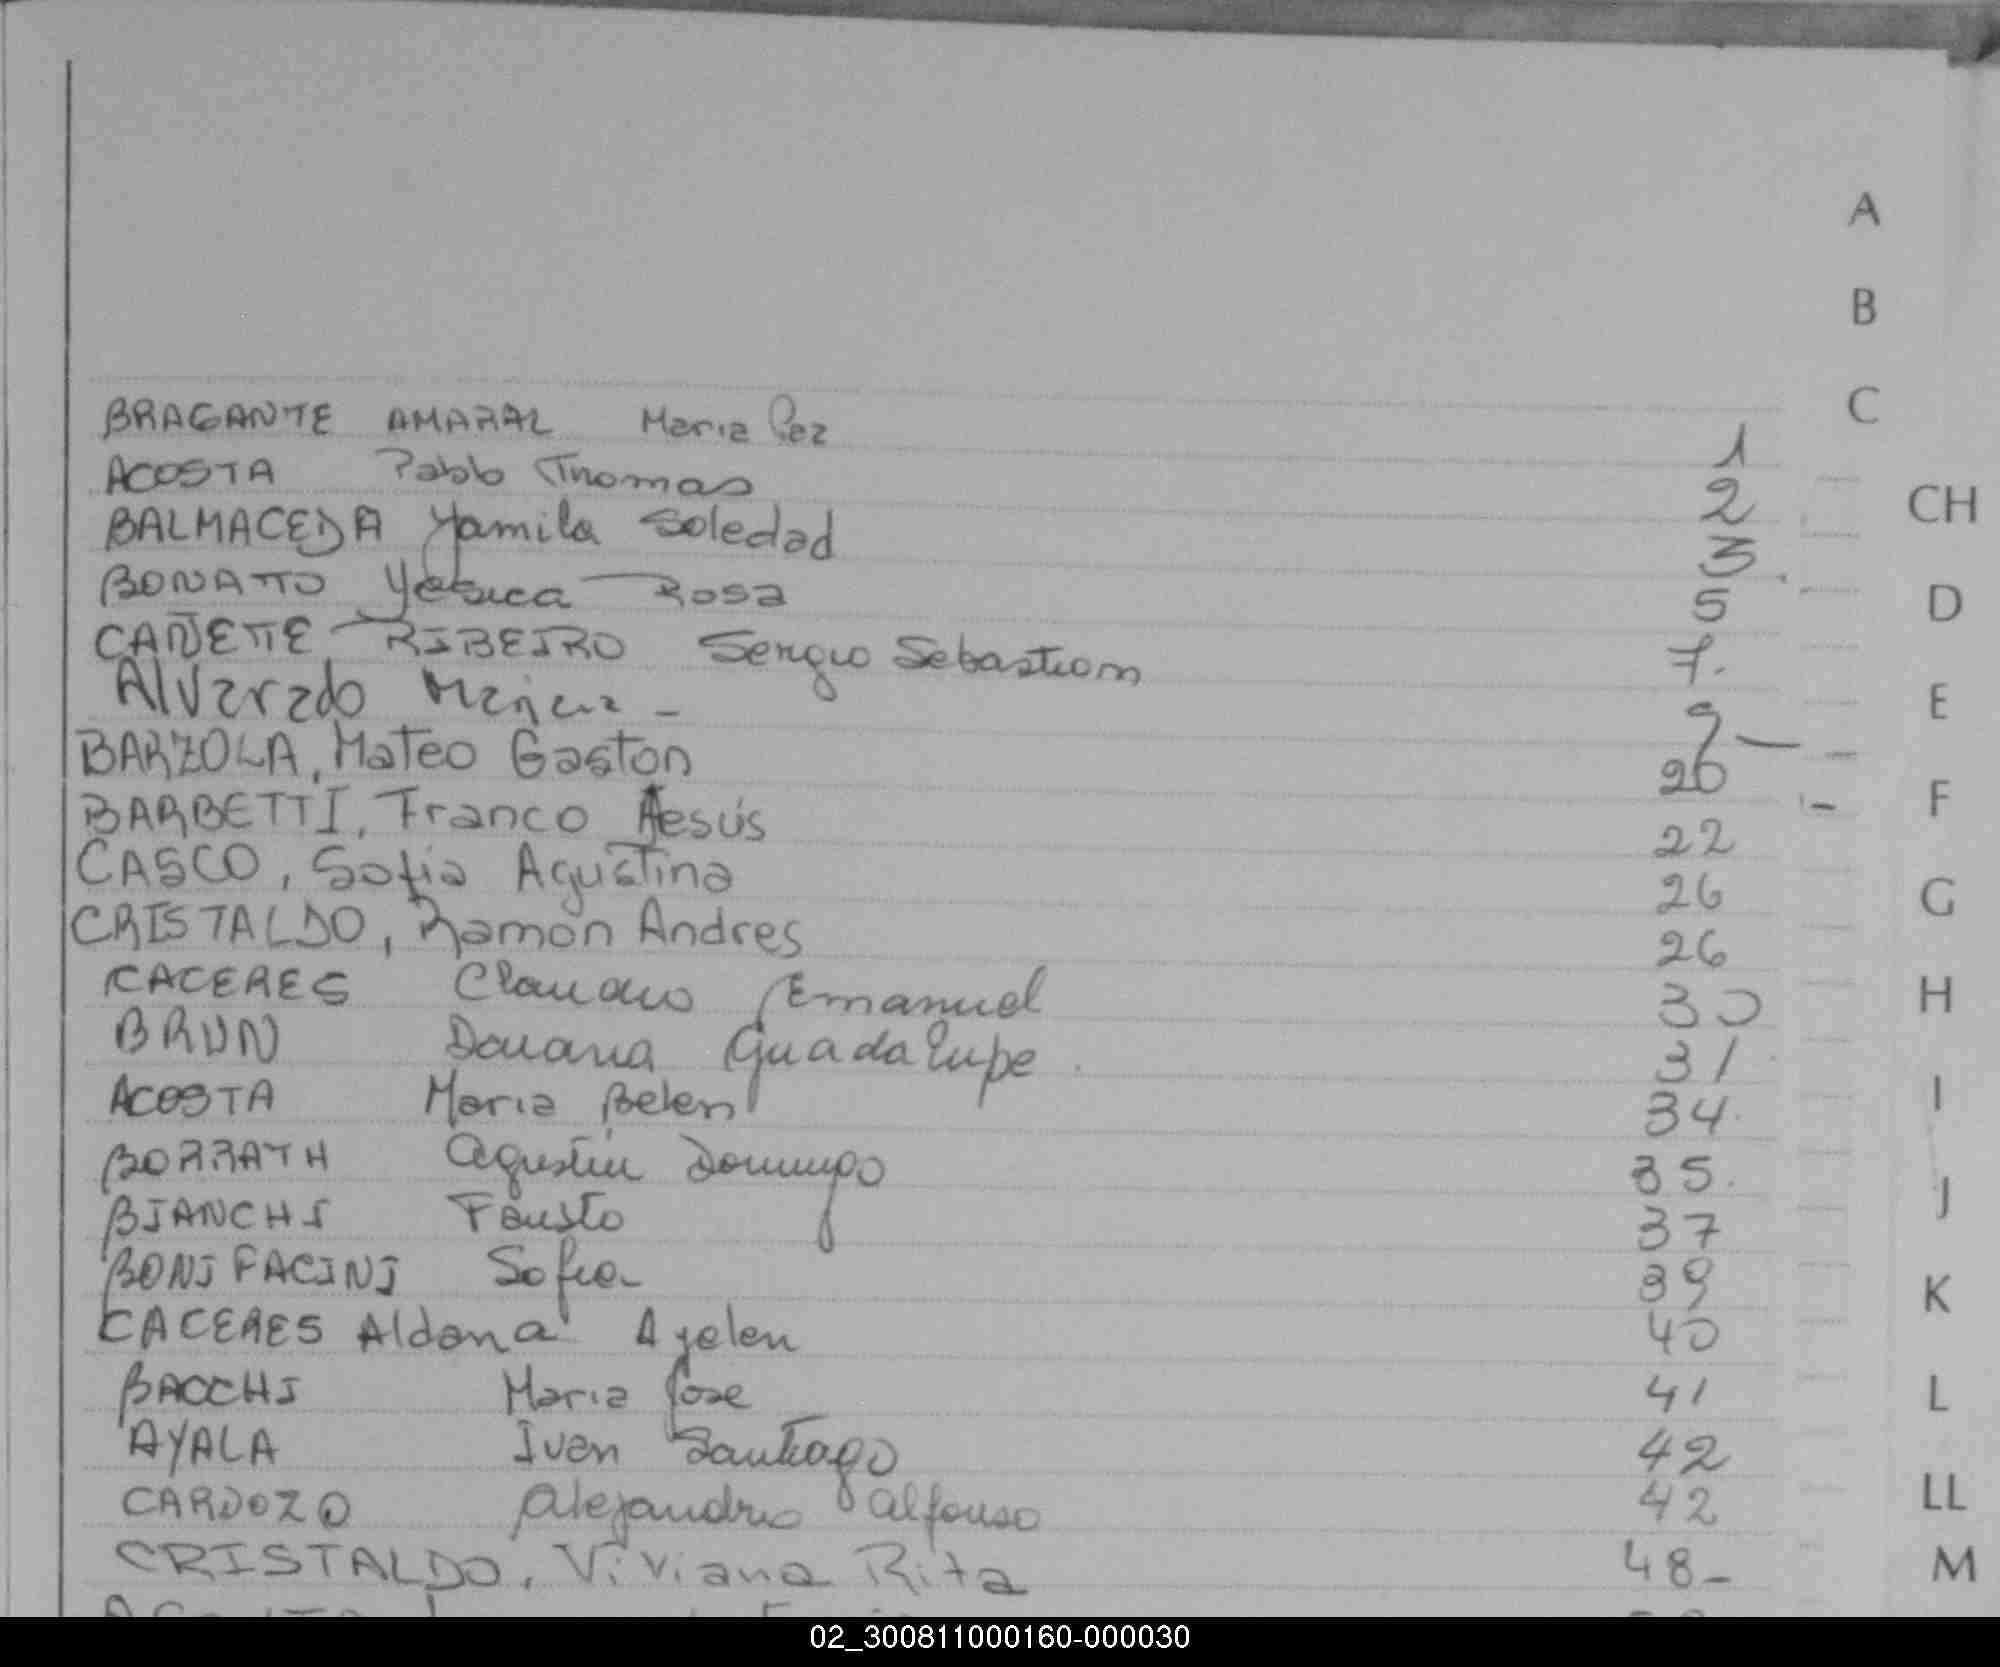 A
B
C
BRAGANTE AMARAL Maria Paz 1
ACOSTA Pablo Thomas 2
BALMACEDA Yamila Soledad 3
CH
BONATTO Yesica Rosa 5
D
CAÑETE RIBEIRO Sergio Sebastian 7.
Alvarado - 9-
E
BARZOLA, Mateo Gaston 20
BARBETTI, Franco Jesús 22
F
CASCO, Sofia Agustina 26
G
CRISTALDO, Ramon Andres 26
CACERES Claudio Emanuel 30
H
BRUN Daiana Guadalupe. 31
ACOSTA Maria Belen 34
I
BORRATH Agustin Domingo 35.
BIANCHI Fausto 37
J
BONIFACINI Sofia 39
K
CACERES Aldana Ayelen 40
BACCHI Maria Jose 41
L
AYALA Ivan Santiago 42
CARDOZO Alejandro Alfonso 42
LL
CRISTALDO, Viviana Rita 48-
M
02_300811000160-000030